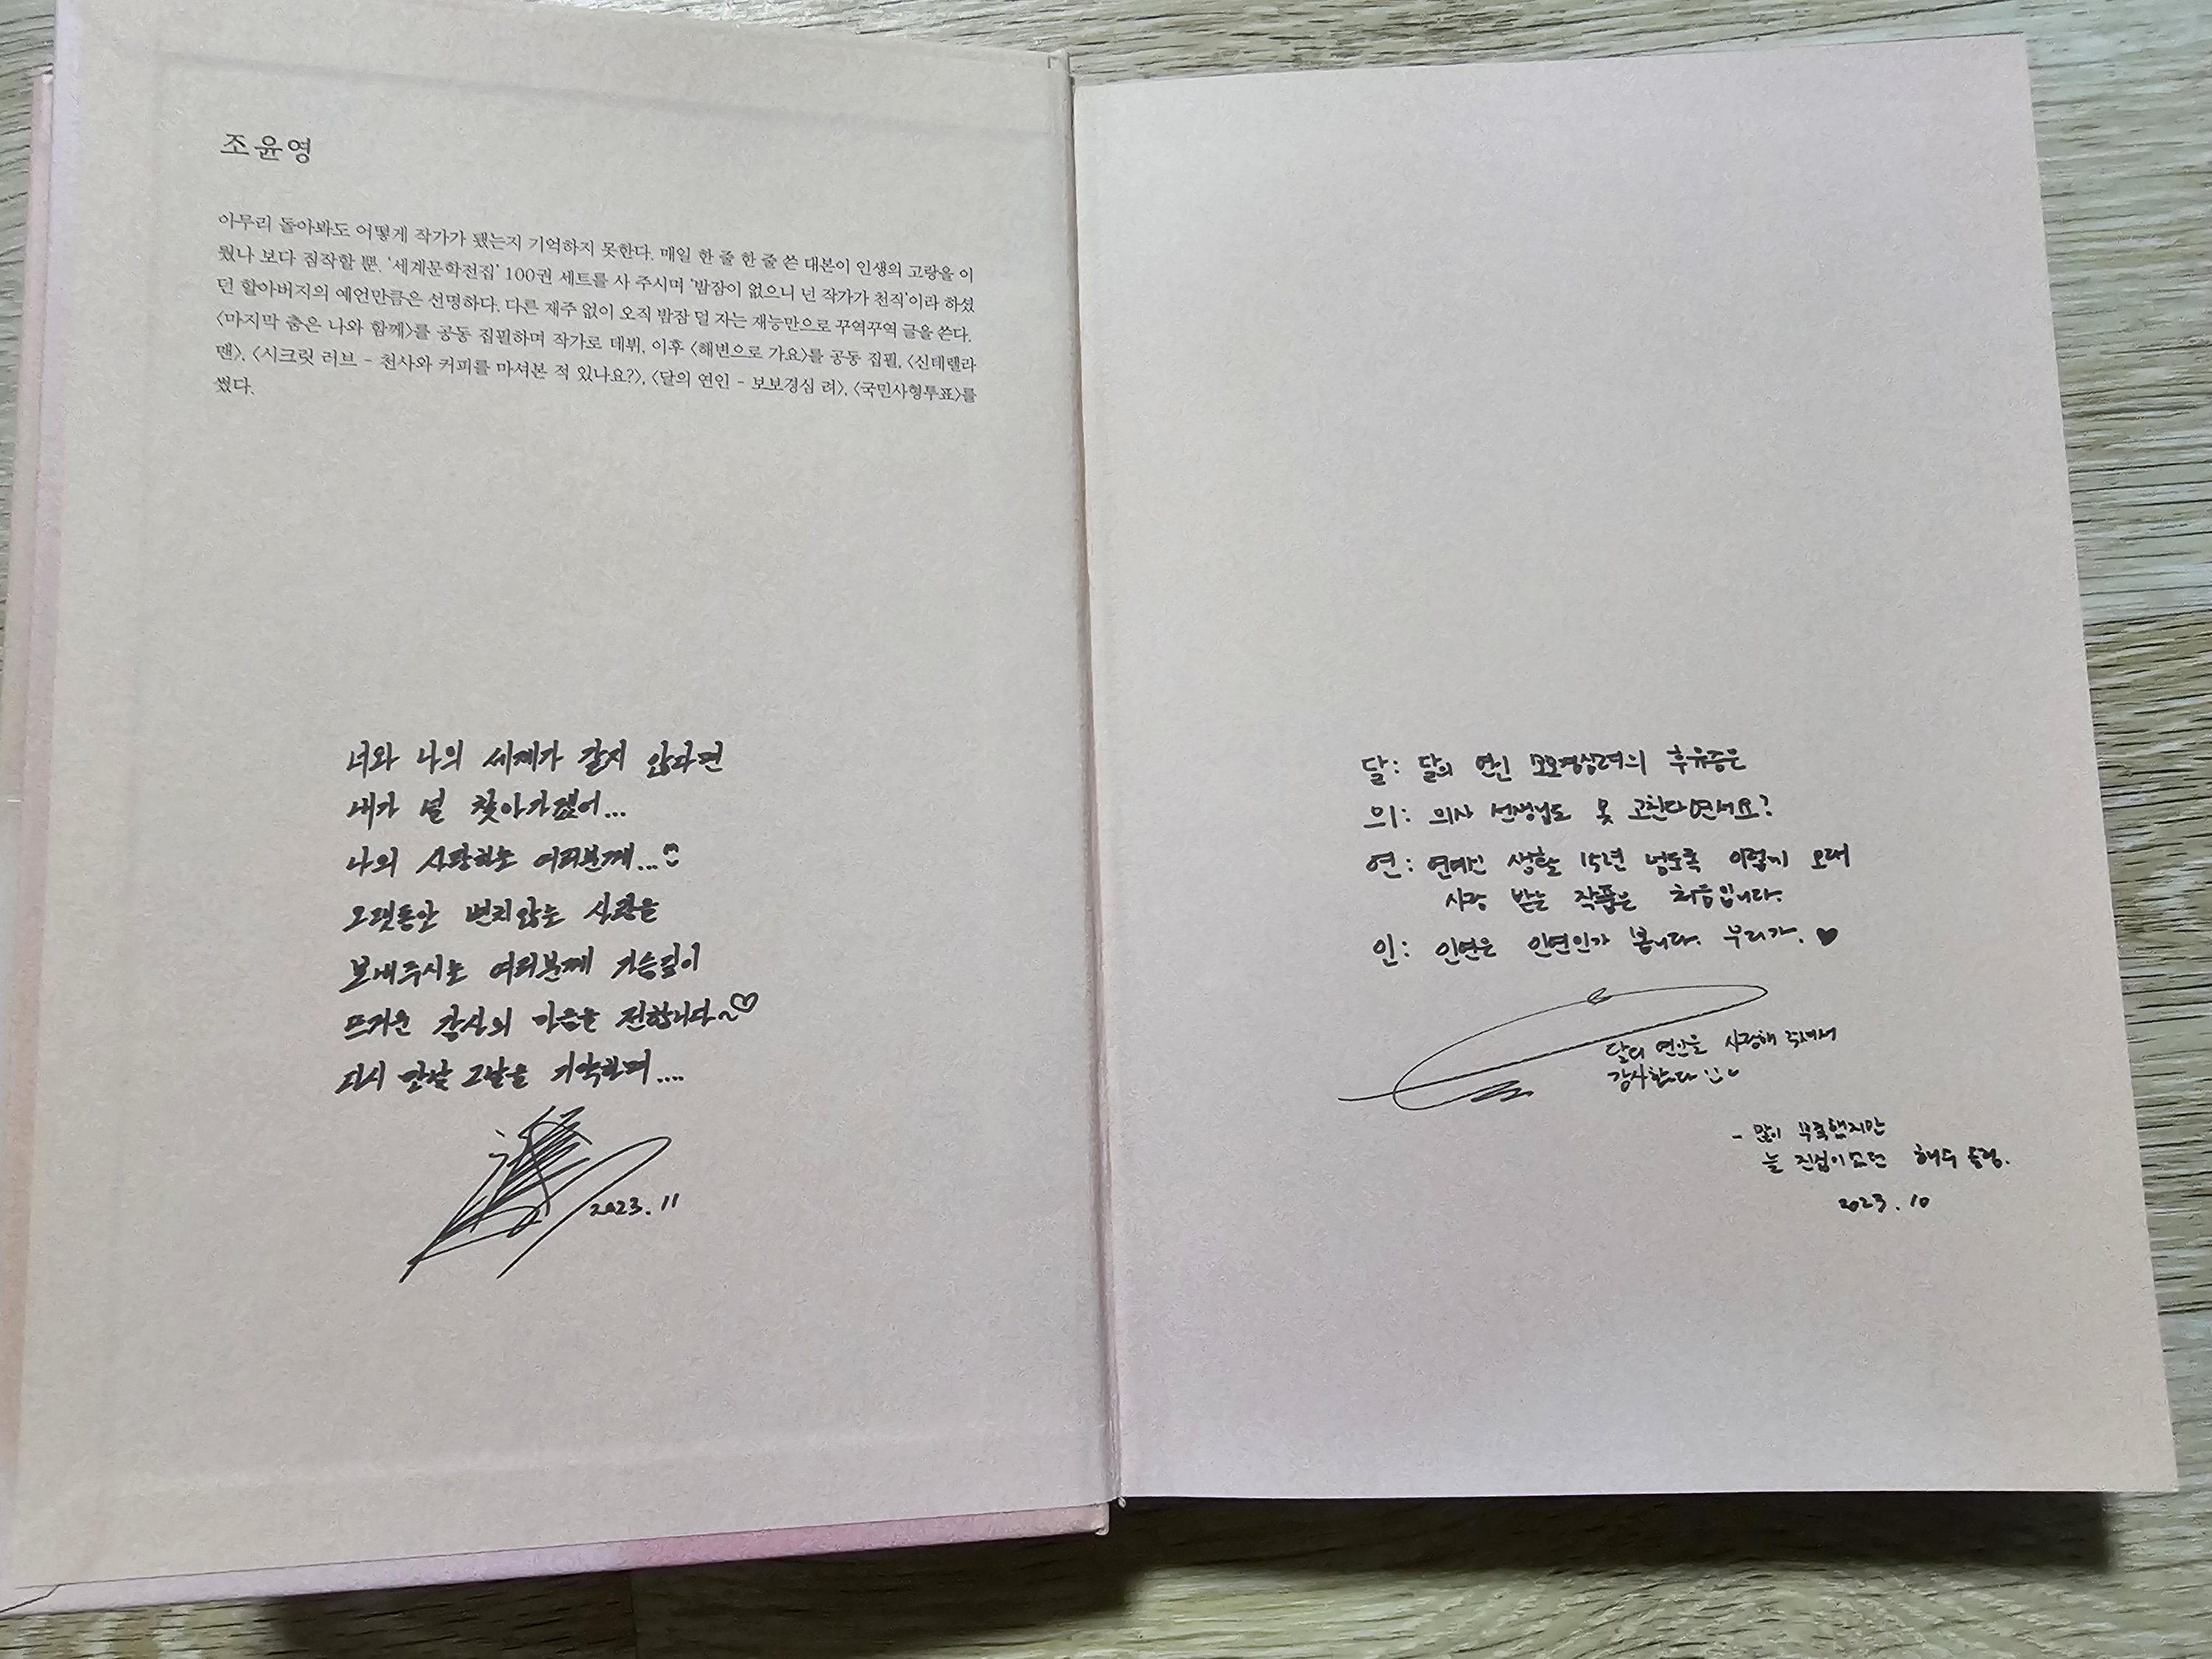 조윤영
아무리 돌아봐도 어떻게 작가가 됐는지 기억하지 못한다. 매일 한 줄 한 줄 쓴 대본이 인생의 고랑을 이
뤘나 보다 짐작할 뿐. '세계문학전집' 100권 세트를 사 주시며 '밤잠이 없으니 넌 작가가 천직'이라 하셨
던 할아버지의 예언만큼은 선명하다. 다른 재주 없이 오직 밤잠 덜 자는 재능만으로 꾸역꾸역 글을 쓴다.
〈마지막 춤은 나와 함께〉를 공동 집필하며 작가로 데뷔, 이후 〈해변으로 가요〉를 공동 집필, 〈신데렐라
맨〉, 〈시크릿 러브 – 천사와 커피를 마셔본 적 있나요?〉, 〈달의 연인 – 보보경심 려〉, 〈국민사형투표〉를
썼다.
너와 나의 세계가 같지 않다면
내가 널 찾아가겠어...
나의 사랑하는 여러분께...
오랫동안 변치않는 사랑을
보내주시는 여러분께 가슴깊이
뜨거운 감사의 마음을 전합니다~♡
다시 만날 그날을 기약하며....
2023. 11
달: 달의 연인 보보경심려의 후유증은
의: 의사 선생님도 못 고친다면서요?
연: 연예인 생활 15년 넘도록 이렇게 오래
사랑 받는 작품은 처음입니다.
인: 인연은 인연인가 봅니다. 우리가. ♥
달의 연인을 사랑해 주셔서
감사합니다
- 많이 부족했지만
늘 진심이었던 해수 드림.
2023. 10